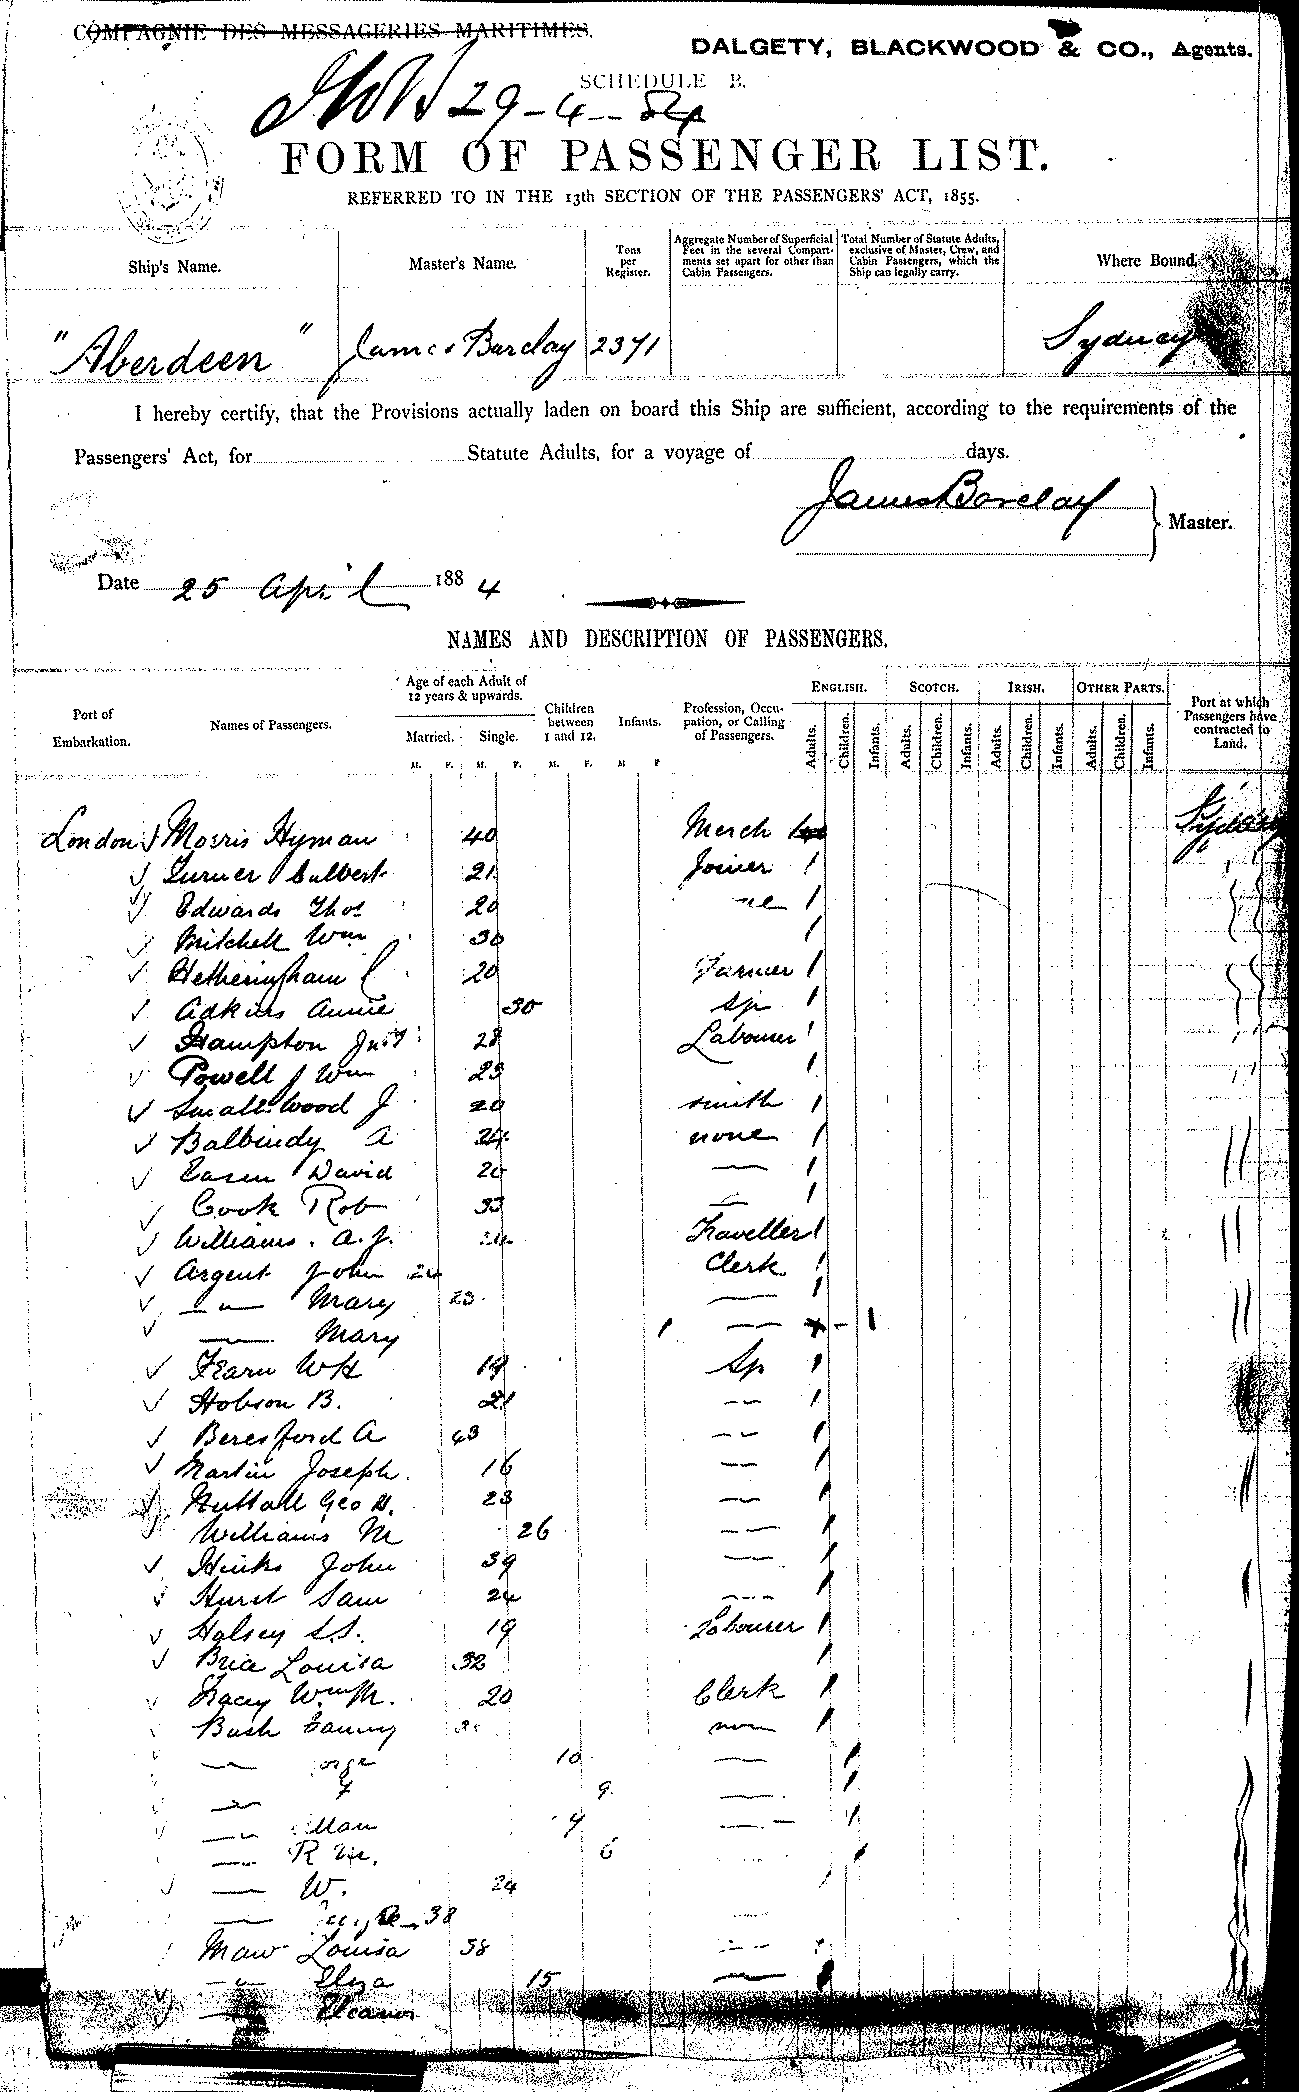 COMPAGNIE DES MESSAGERIES MARITIMES.
DALGETY, BLACKWOOD & CO., Agents.
SCHEDULE B.
29-4-84
FORM OF PASSENGER LIST.
REFERRED TO IN THE 13th SECTION OF THE PASSENGERS' ACT, 1855.
Ship's Name. Master's Name. Tons per Register. Aggregate Number of Superficial Feet in the several Compartments set apart for other than Cabin Passengers. Total Number of Statute Adults, exclusive of Master, Crew, and Cabin Passengers, which the Ship can legally carry. Where Bound.
"Aberdeen" James Barclay 2371 Sydney
I hereby certify, that the Provisions actually laden on board this Ship are sufficient, according to the requirements of the
Passengers' Act, for Statute Adults, for a voyage of days.
James Barclay
Master.
Date 25 April 1884
NAMES AND DESCRIPTION OF PASSENGERS.
Port of Embarkation. Names of Passengers. Age of each Adult of 12 years & upwards. Married. Single. Children between 1 and 12. Infants. Profession, Occupation, or Calling of Passengers. ENGLISH. SCOTCH. IRISH. OTHER PARTS. Port at which Passengers have contracted to Land.
M. F. M. F. M. F. M F Adults. Children. Infants. Adults. Children. Infants. Adults. Children. Infants. Adults. Children. Infants.
London Morris Hyman 40 Merch Sydney
Turner Culbert 21 Joiner 1
Edwards Thos 20 1
Mitchell Wm 30 1
Hetheringham 20 Farmer 1
Adkins Annie 30 Sp 1
Hampton 28 Labourer 1
Powell J Wm 23 1
Smallwood J 20 smith 1
Balbindy A 24 none 1
David 20 — 1
Cook Rob 33 — 1
Williams. A.J. Traveller 1
Argent John 24 Clerk 1
— " — Mary 23 — 1
— Mary 1 — 1
Fearn WH 19 Sp 1
Hobson B. 21 — 1
Beresford A 43 — 1
Martin Joseph. 16 — 1
Nuttall Geo H. 23 — 1
Williams M 26 — 1
Hinks John 39 — 1
Hurst Sam 24 — 1
Halsey S.S. 19 Labourer 1
Brice Louisa 32 1
Tracey Wm M. 20 Clerk 1
Bush Fanny 1
— 10 — 1
— 9 — 1
— 4 — 1
— R 6 1
— W. 24
— 38
Maw Louisa 38
— " — Eliza 15 —
— Eleanor